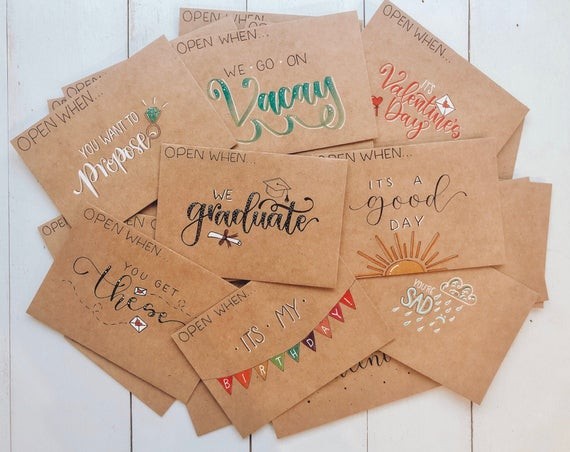 OPEN WHEN...
WE · GO · ON
Vacay
OPEN WHEN...
IT'S
Valentine's
Day
OPEN WHEN...
YOU WANT TO
Propose
OPEN WHEN...
WE
graduate
OPEN WHEN...
ITS A
good
DAY
OPEN WHEN...
YOU GET
these
OPEN WHEN...
· IT'S · MY ·
BIRTHDAY!
YOU'RE
SAD
OPEN
OPEN